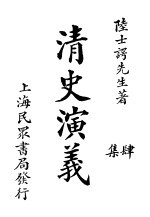 陸士諤先生著
清史演義
肆集
上海民眾書局發行